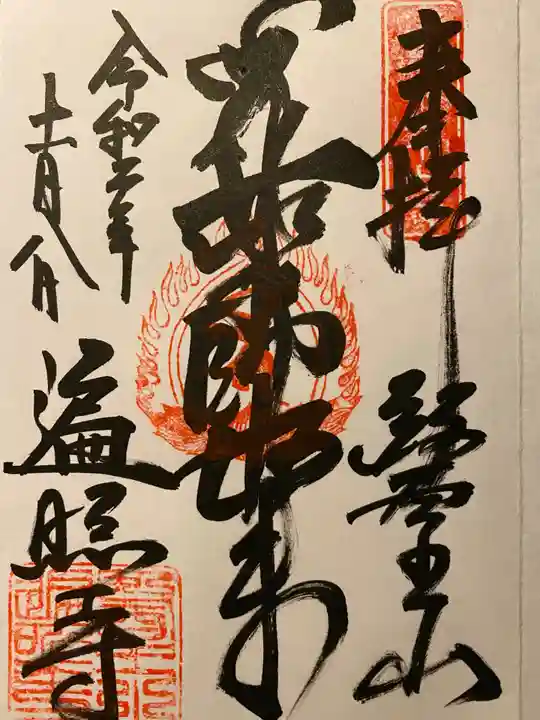 奉拝
醫王山
薬師如来
令和年
十一月八日
遍照寺